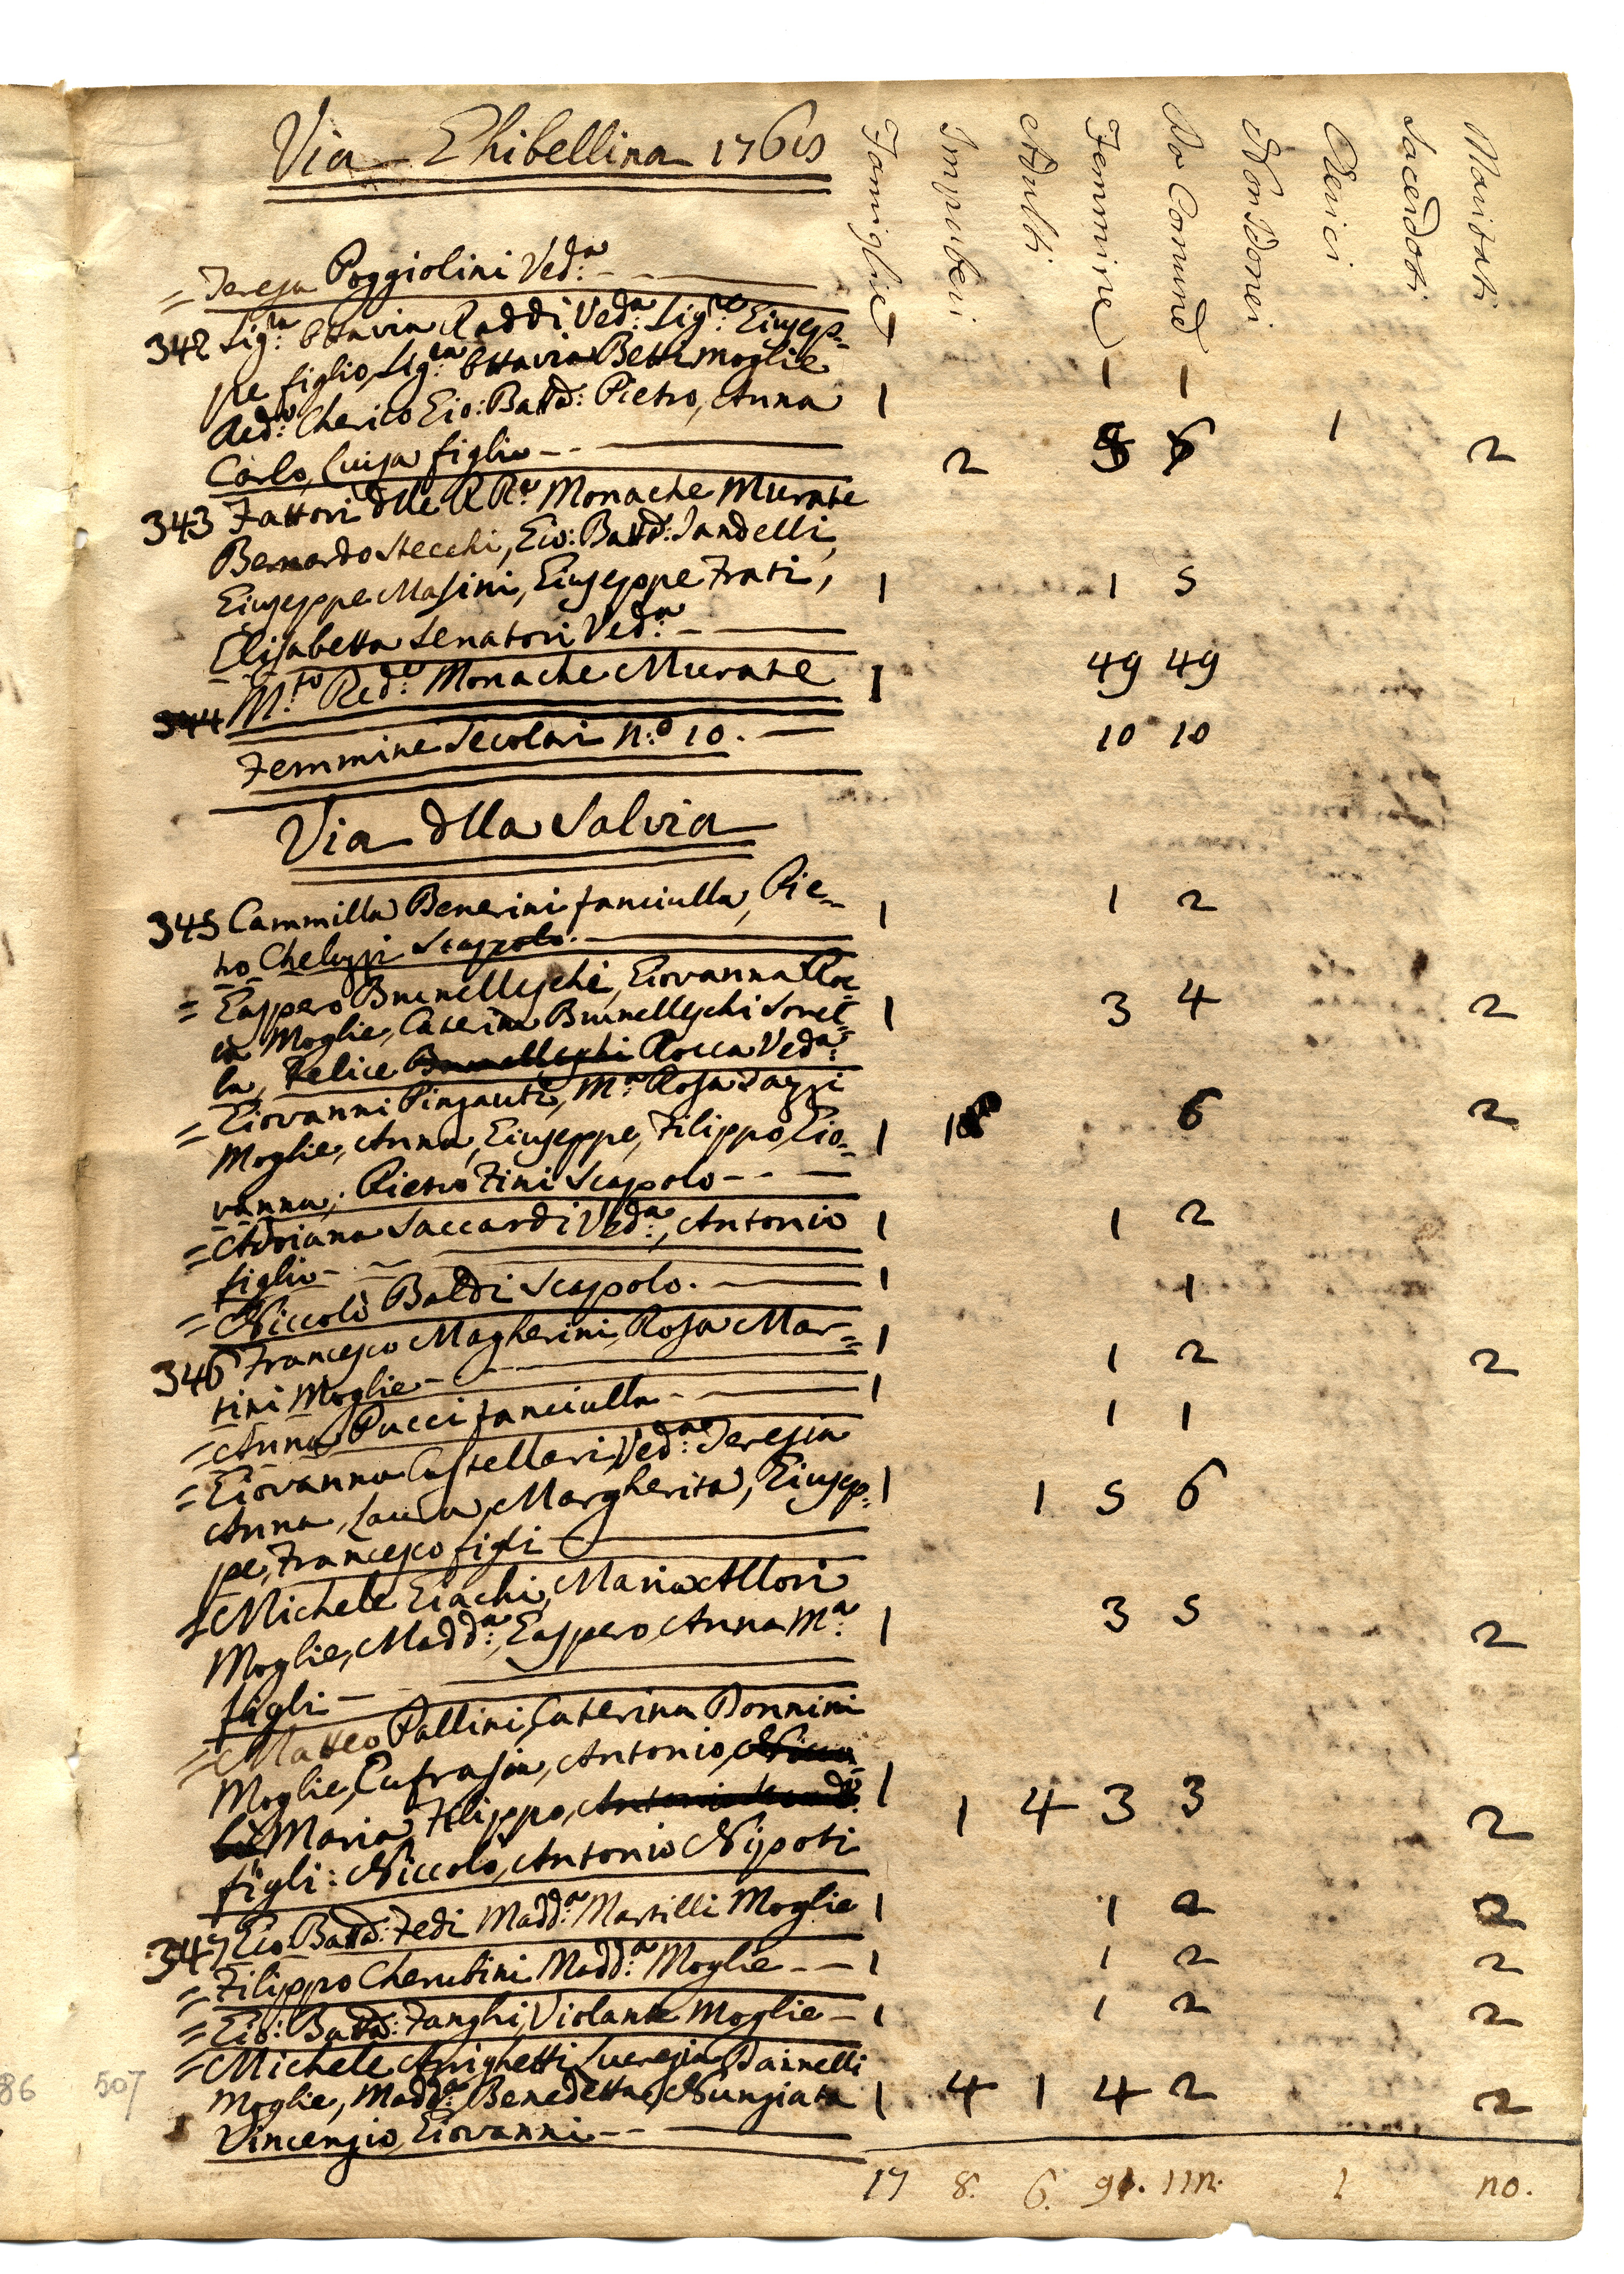 Via Ghibellina 1765
Famiglie Impuberi Adulti Femmine Da Comunᵉ Non Comᵉⁱ Cherici Sacerdoti Maritati
= Teresa Poggiolini Ved:ᵃ - - 1 1
342 Sig:ʳᵃ Ottavia Raddi Ved:ᵃ Sig:ʳᵉ Giusep=
pe figlio, Sig:ʳᵃ Ottavia Betti moglie
Cherico Gio: Batt: Pietro, Anna 1
Carlo, Luisa figli - - 2 6 1 2
343 Fattori dlle RRᵉ Monache Murate
Bernardo Stecchi, Gio: Batt: Sandelli,
Giuseppe Masini, Giuseppe Frati, 1 1 5
Elisabetta Senatori Ved:ᵃ -
344 M:ᵗᵒ Red:ᵉ Monache Murate 1 49 49
Femmine Secolari N:º 10. 10 10
Via dlla Salvia
345 Cammilla Benerini fanciulla, Pie= 1 1 2
tro Cheluzzi Scapolo.
= Gaspero Brunelleschi, Giovanna Roc=
ca Moglie, Caterina Brunelleschi Sorel= 1 3 4 2
la, Felice Brunelleschi Rocca Ved:ᵃ
= Giovanni Pinzauti, M:ᵃ Rosa Dazzi
Moglie, Anna, Giuseppe, Filippo, Gio= 1 1 6 2
vanna, Pietro Fini Scapolo - - -
= Adriana Saccardi Ved:ᵃ, Antonio 1 1 2
figlio - -
= Niccolò Baldi Scapolo. 1 1
346 Francesco Magherini, Rosa Mar= 1 1 2 2
tini Moglie -
= Anna Pucci fanciulla - 1 1 1
= Giovanna Castellari Ved:ᵃ Teresia
Anna, Laura, Margherita, Giusep= 1 1 5 6
pe, Francesco figli
= Michele Giachi, Maria Allori
Moglie, Madd:ᵃ, Gaspero, Anna M:ᵃ 1 3 5 2
figli -
= Matteo Pallini, Caterina Donnini
Moglie, Eufrasia, Antonio, Nicco=
lò Maria, Filippo, Antonio 1 1 4 3 3 2
figli: Niccolò, Antonio Nipoti
347 Gio Batt: Fedi Madd:ᵃ Martilli Moglie 1 1 2 2
= Filippo Cherubini Madd:ᵃ Moglie - - 1 1 2 2
= Gio: Batt: Fanghi, Violante Moglie - 1 1 2 2
= Michele Arrighetti Lucrezia Dainelli
Moglie, Madd:ᵃ, Benedetta, Nunziata 1 4 1 4 2 2
Vincenzio, Giovanni - -
86 507
17 8. 6. 91. 112. 1 20.